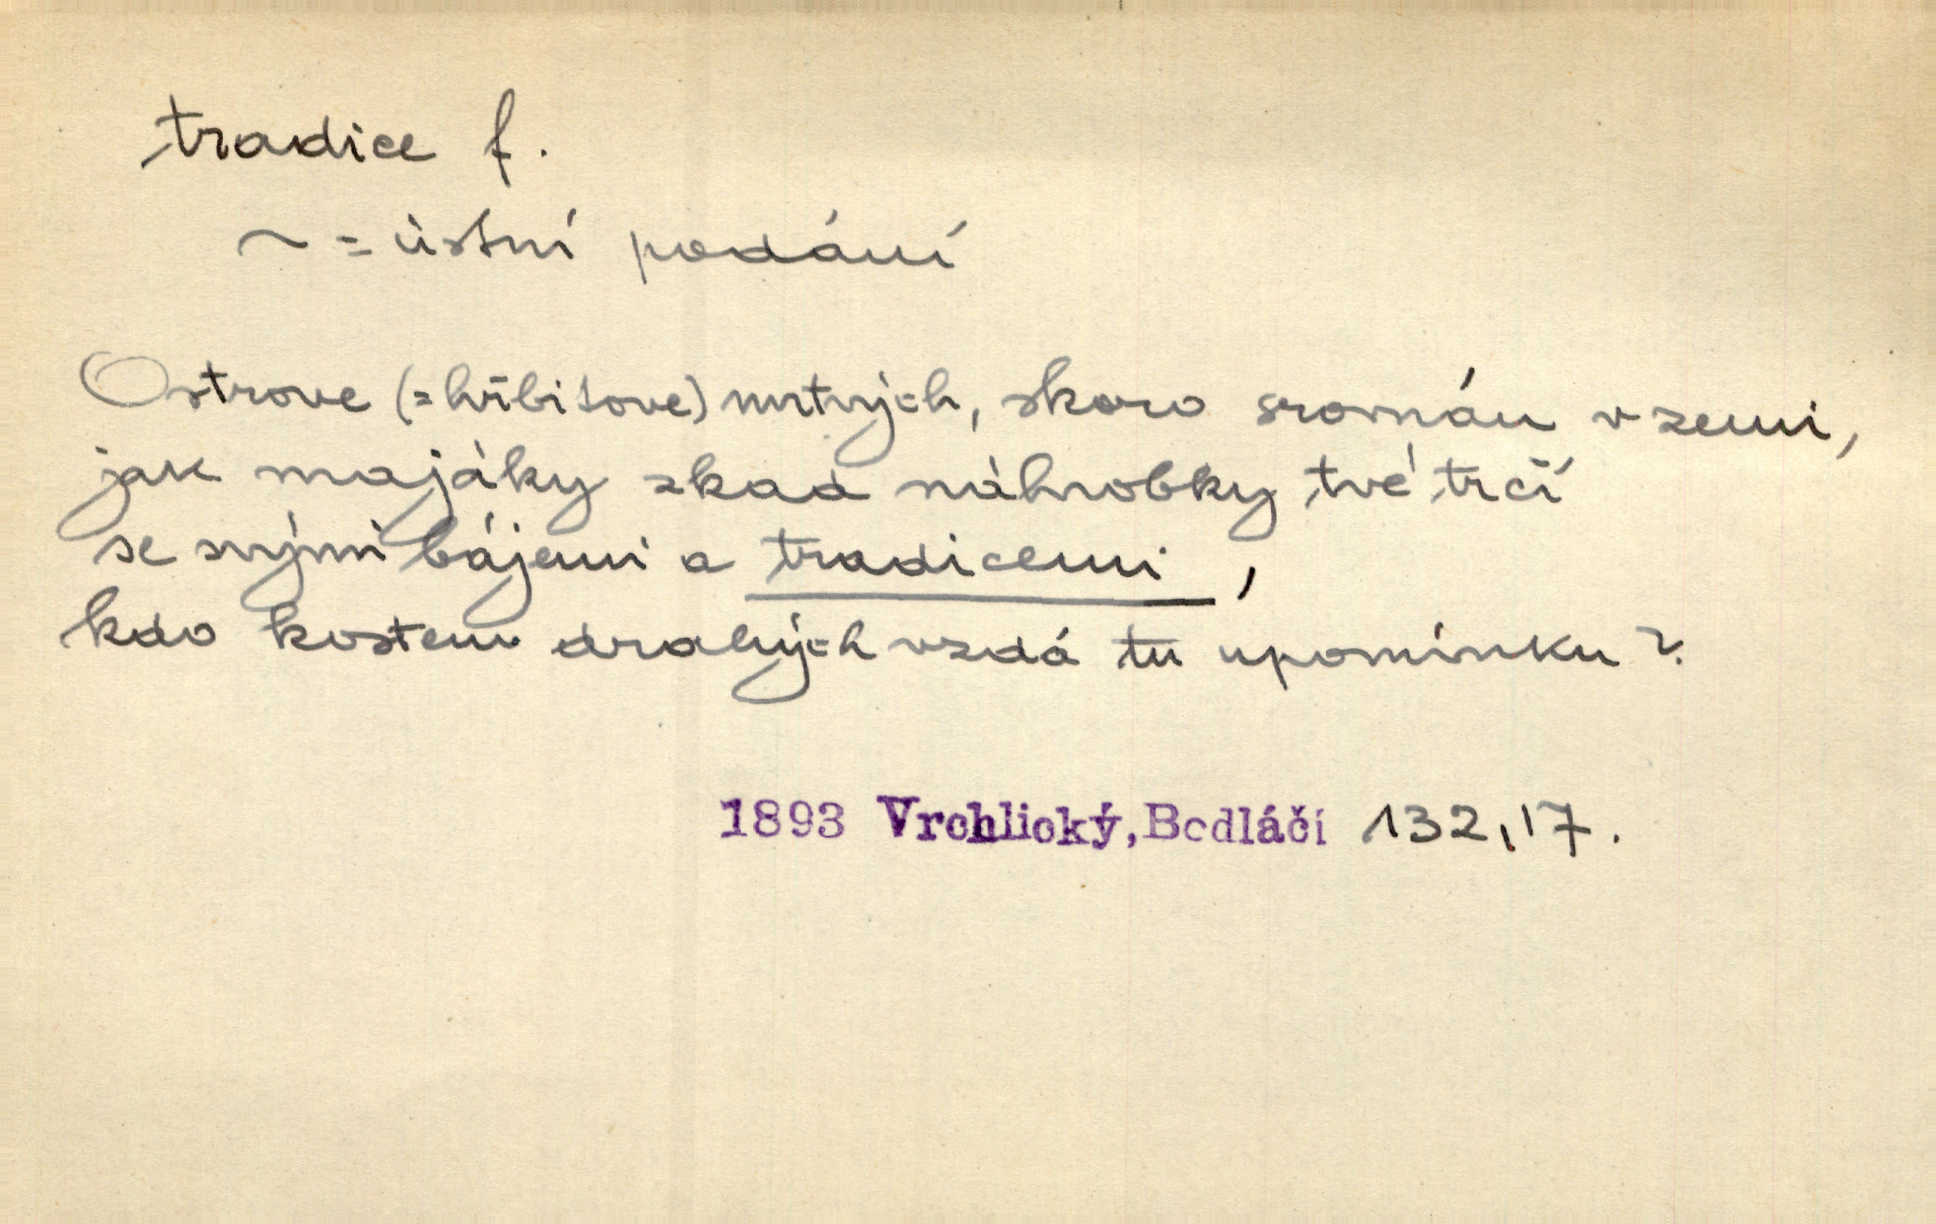 tradice f.
~ = ústní podání
Ostrove (= hřbitove) mrtvých, skoro srovnán v zemi,
jak majáky zkad náhrobky tvé trčí
se svými bájemi a tradicemi,
kdo kostem drahých vzdá tu upomínku?
1893 Vrchlický, Bodláčí 132,17.